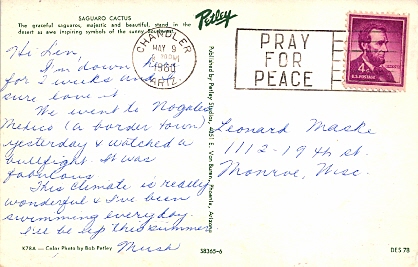 SAGUARO CACTUS
The graceful saguaros, majestic and beautiful, stand in the
desert as awe inspiring symbols of the sunny
Petley
CHANDLER
MAY 9
1960
ARIZ.
PRAY
FOR
PEACE
4¢
U.S. POSTAGE
Hi Len,
I'm down here
for 2 weeks and
sure love it
We went to Nogales
Mexico (a border town)
yesterday & watched a
bullfight. It was
fabulous
This climate is really
wonderful & I've been
swimming everyday.
I'll be up this summer
Mush
Pictures by Petley Studios, 4051 E. Van Buren, Phoenix, Arizona
Leonard Maske
1112-19th st.
Monroe, Wisc.
K78A — Color Photo by Bob Petley
S8365-6
DES 78